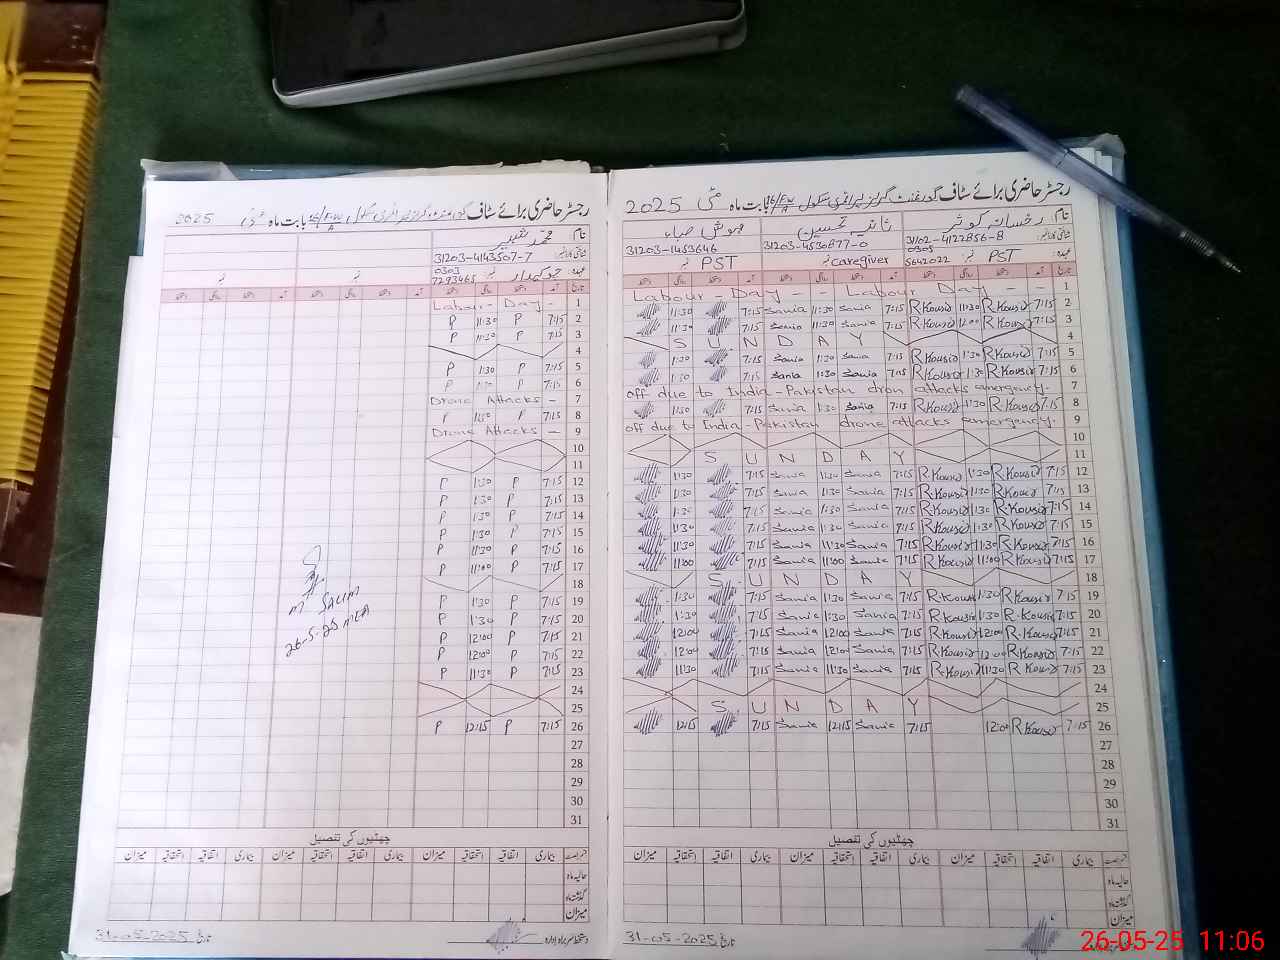 رجسٹر حاضری برائے سٹاف گورنمنٹ گرلز پرائمری سکول 16/FW بابت ماہ مئی 2025
نام رخسانہ کوثر ثانیہ تحسین مہوش صبا
31102-4122856-8 31203-4530877-0 31203-1453646
عہدہ PST نمبر 0305 5642022 caregiver نمبر PST نمبر
تاریخ
1 Labour - Day - - Labour Day -
2 7:15 R.Kousir 11:30 R.Kousir 7:15 Sania 11:30 Sania 7:15 11:30
3 7:15 R.Kousir 11:00 R.Kousir 7:15 Sania 11:30 Sania 7:15 11:30
4 SUNDAY
5 7:15 R.Kousir 1:30 R.Kousir 7:15 Sania 1:30 Sania 7:15 1:30
6 7:15 R.Kousir 1:30 R.Kousir 7:15 Sania 1:30 Sania 7:15 1:30
7 off due to India-Pakistan dron attacks emergency.
8 7:15 R.Kousir 1:30 R.Kousir 7:15 Sania 1:30 Sania 7:15 1:30
9 off due to India-Pakistan drone attacks emergency.
10
11 SUNDAY
12 7:15 R.Kousir 1:30 R.Kousir 7:15 Sania 1:30 Sania 7:15 1:30
13 7:15 R.Kousir 1:30 R.Kousir 7:15 Sania 1:30 Sania 7:15 1:30
14 7:15 R.Kousir 1:30 R.Kousir 7:15 Sania 1:30 Sania 7:15 1:30
15 7:15 R.Kousir 1:30 R.Kousir 7:15 Sania 1:30 Sania 7:15 1:30
16 7:15 R.Kousir 11:30 R.Kousir 7:15 Sania 11:30 Sania 7:15 11:30
17 7:15 R.Kousir 11:00 R.Kousir 7:15 Sania 11:00 Sania 7:15 11:00
18 SUNDAY
19 7:15 R.Kousir 1:30 R.Kousir 7:15 Sania 1:30 Sania 7:15 1:30
20 7:15 R.Kousir 1:30 R.Kousir 7:15 Sania 1:30 Sania 7:15 1:30
21 7:15 R.Kousir 12:00 R.Kousir 7:15 Sania 12:00 Sania 7:15 12:00
22 7:15 R.Kousir 12:00 R.Kousir 7:15 Sania 12:00 Sania 7:15 12:00
23 7:15 R.Kousir 11:30 R.Kousir 7:15 Sania 11:30 Sania 7:15 11:30
24
25 SUNDAY
26 7:15 R.Kousir 12:00 7:15 Sania 12:15 Sania 7:15 12:15
27
28
29
30
31
چھٹیوں کی تفصیل
بیماری اتفاقیہ استحقاقیہ میزان بیماری اتفاقیہ استحقاقیہ میزان بیماری اتفاقیہ استحقاقیہ میزان
حالیہ ماہ
گذشتہ ماہ
میزان
تاریخ 31-05-2025
رجسٹر حاضری برائے سٹاف گورنمنٹ گرلز پرائمری سکول 16/FW بابت ماہ مئی 2025
نام محمد شبیر
31203-4143507-7
عہدہ چوکیدار نمبر 0303 7293465 نمبر نمبر
تاریخ
1 Labour - Day -
2 7:15 P 11:30 P
3 7:15 P 11:30 P
4
5 7:15 P 1:30 P
6 7:15 P 1:30 P
7 Drone Attacks -
8 7:15 P 1:30 P
9 Drone Attacks -
10
11
12 7:15 P 1:30 P
13 7:15 P 1:30 P
14 7:15 P 1:30 P
15 7:15 P 1:30 P
16 7:15 P 11:30 P
17 7:15 P 11:00 P
18
19 7:15 P 1:30 P
20 7:15 P 1:30 P
21 7:15 P 12:00 P
22 7:15 P 12:00 P
23 7:15 P 11:30 P
24
25
26 7:15 P 12:15 P
27
28
29
30
31
M SALIM
26-5-25 MEA
چھٹیوں کی تفصیل
بیماری اتفاقیہ استحقاقیہ میزان بیماری اتفاقیہ استحقاقیہ میزان بیماری اتفاقیہ استحقاقیہ میزان
حالیہ ماہ
گذشتہ ماہ
میزان
دستخط سربراہ ادارہ تاریخ 31-05-2025
26-05-25 11:06